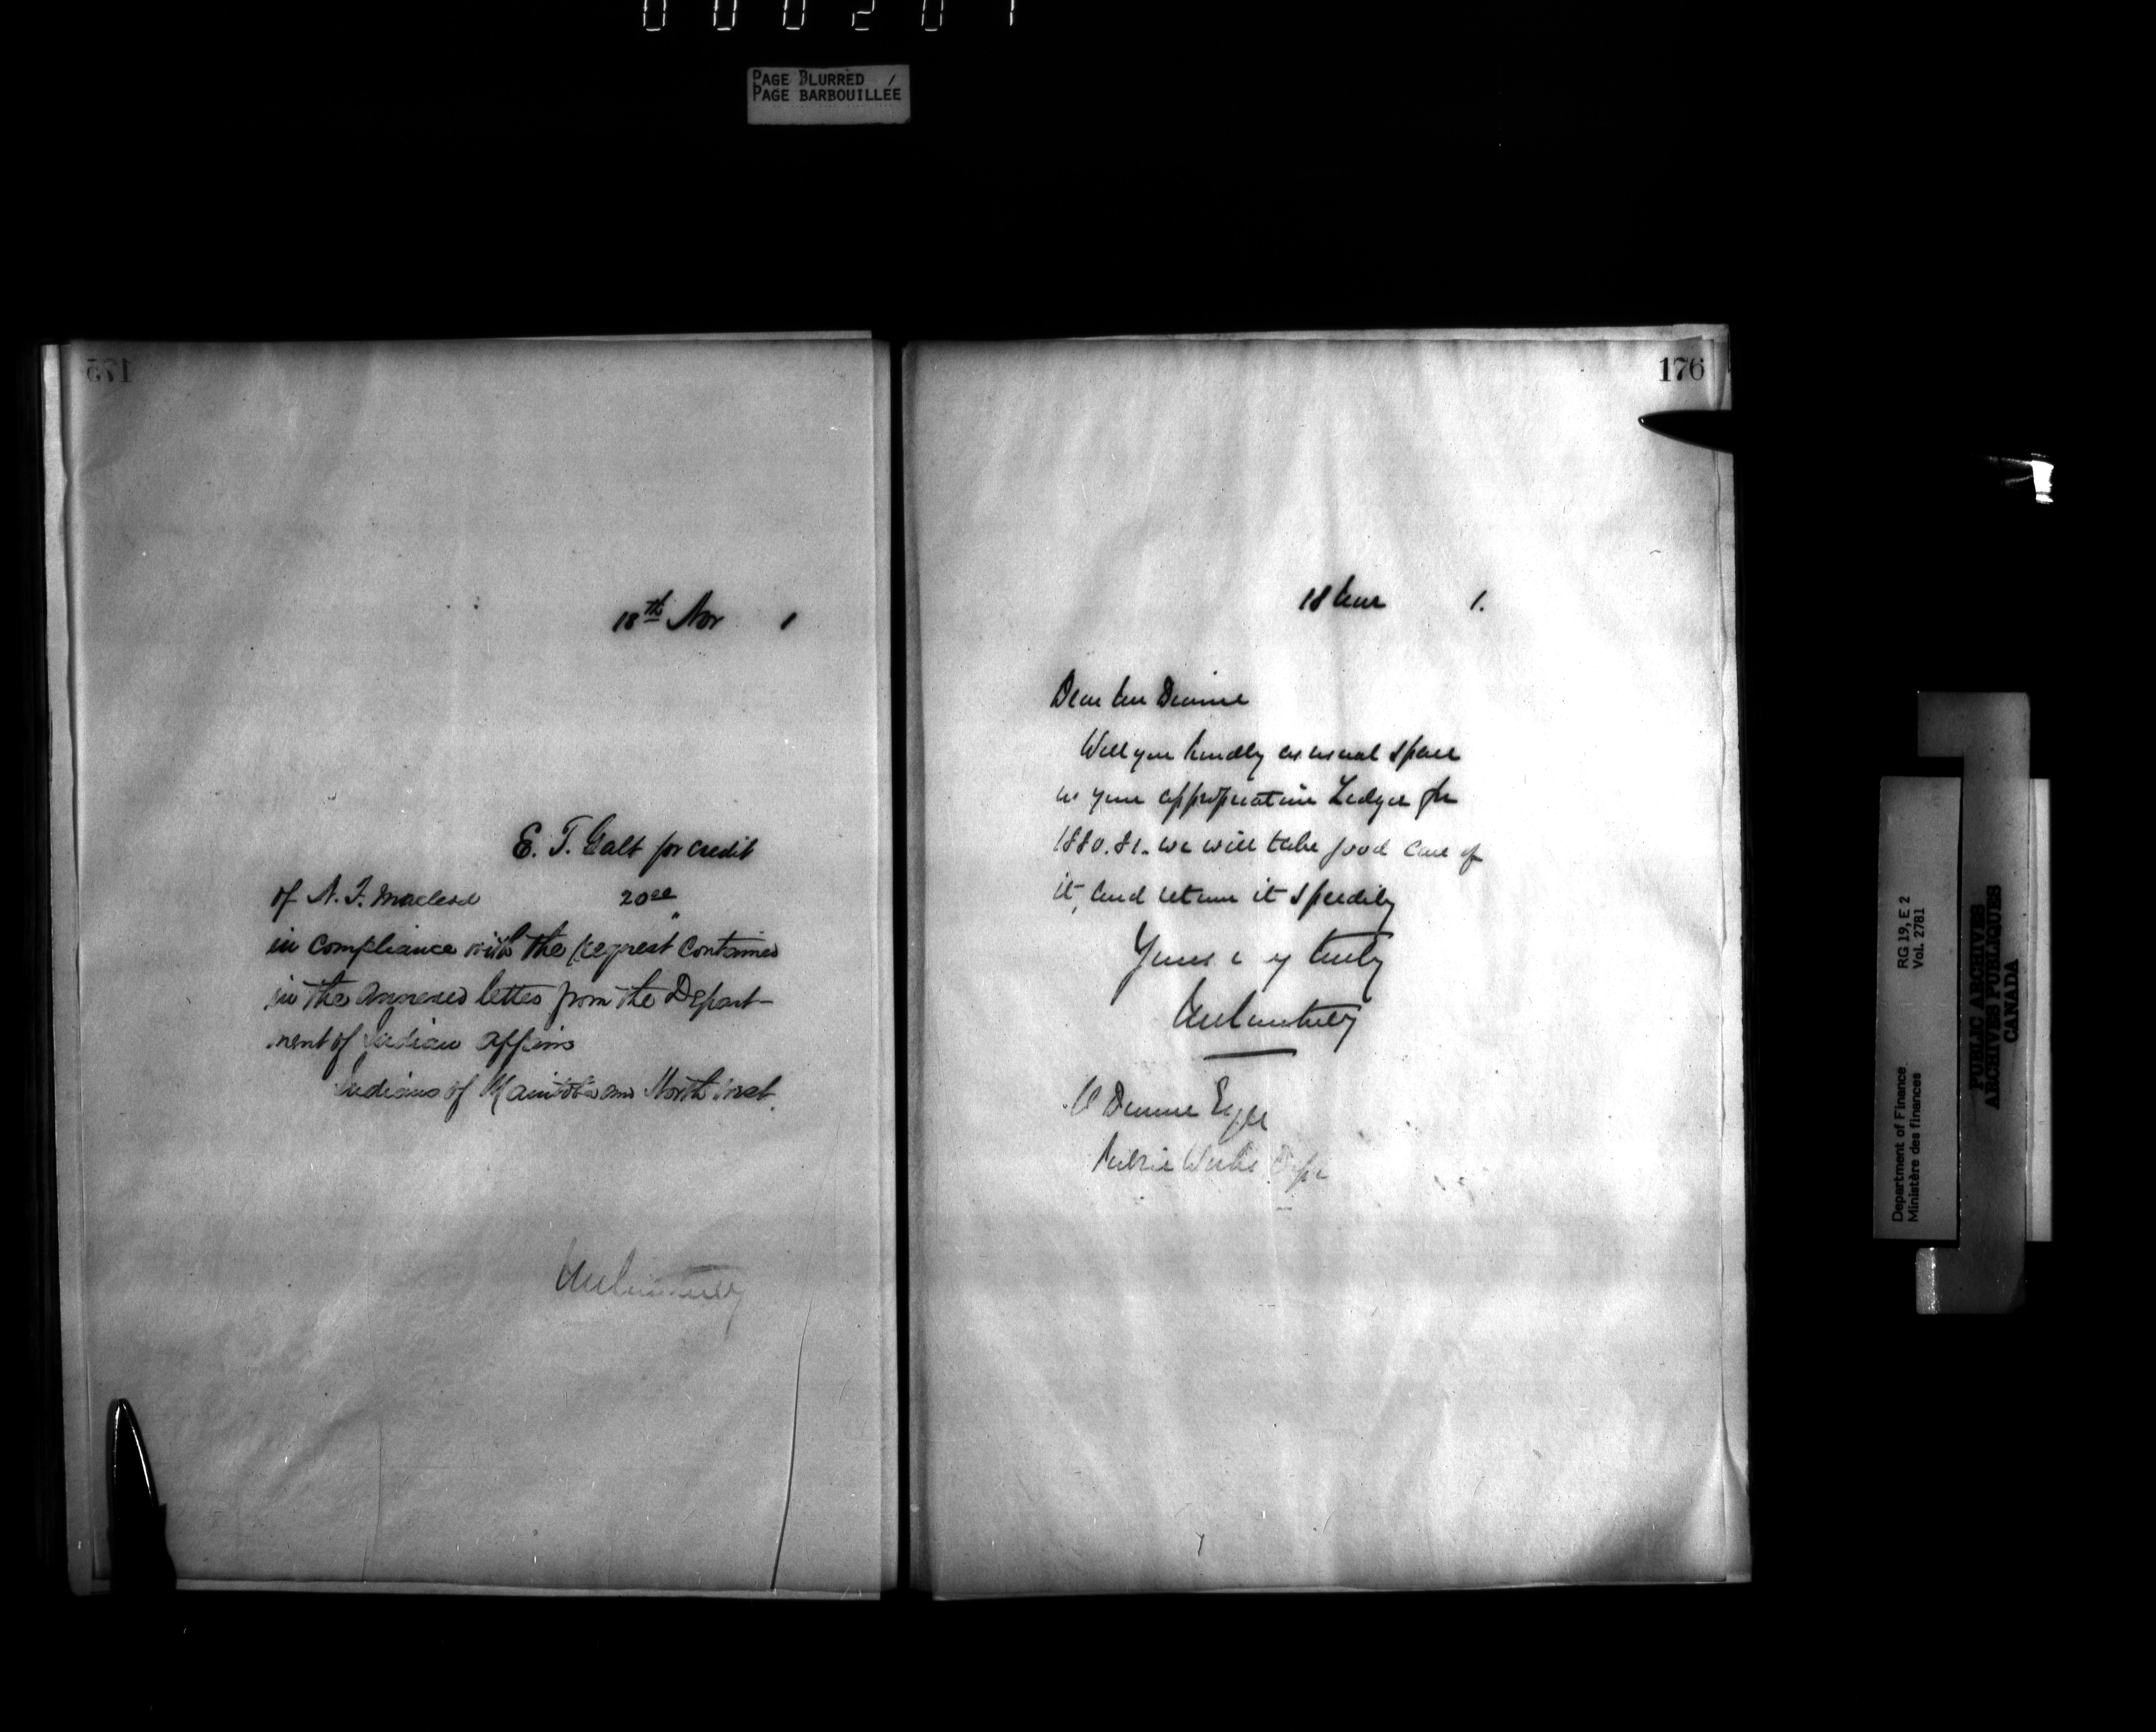 000201
PAGE BLURRED
PAGE BARBOUILLÉE
175
18th Nov 1
E. T. Galt for credit
of N. F. Macleod 20 00
in compliance with the request contained
in the annexed letter from the Depart-
ment of Indian Affairs
Indians of Manitoba and North West.
176
18 Nov 1.
Dear Mr Dionne
Will you kindly as usual spare
us your appropriation Ledger for
1880.81. we will take good care of
it, and return it speedily
Yours truly
Dionne Esqr
Public Works Dept
RG 19, E 2
Vol. 2781
Department of Finance
Ministère des finances
PUBLIC ARCHIVES
ARCHIVES PUBLIQUES
CANADA